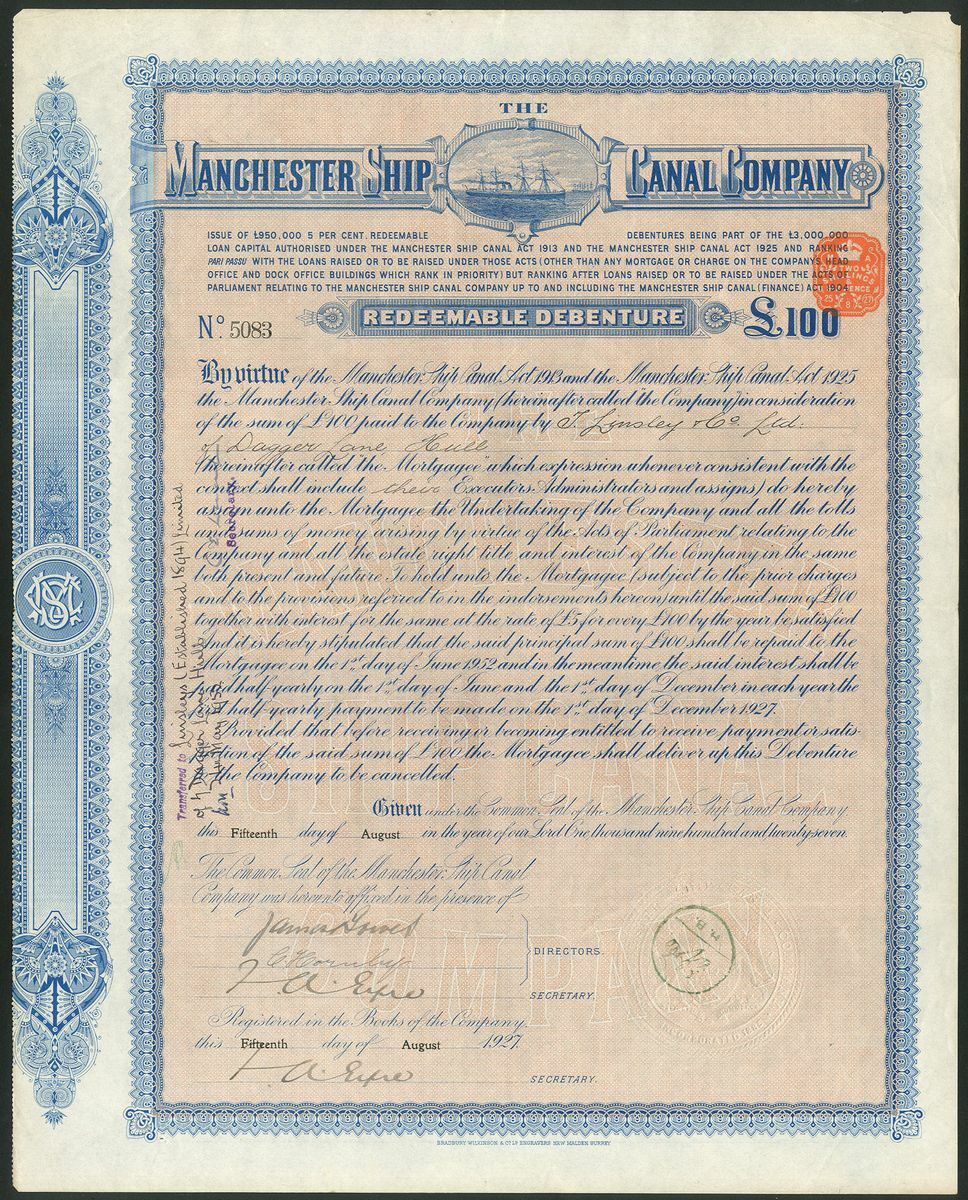 THE
MANCHESTER SHIP CANAL COMPANY
ISSUE OF £950,000 5 PER CENT. REDEEMABLE DEBENTURES BEING PART OF THE £3,000,000
LOAN CAPITAL AUTHORISED UNDER THE MANCHESTER SHIP CANAL ACT 1913 AND THE MANCHESTER SHIP CANAL ACT 1925 AND RANKING
PARI PASSU WITH THE LOANS RAISED OR TO BE RAISED UNDER THOSE ACTS (OTHER THAN ANY MORTGAGE OR CHARGE ON THE COMPANY'S HEAD
OFFICE AND DOCK OFFICE BUILDINGS WHICH RANK IN PRIORITY) BUT RANKING AFTER LOANS RAISED OR TO BE RAISED UNDER THE ACTS OF
PARLIAMENT RELATING TO THE MANCHESTER SHIP CANAL COMPANY UP TO AND INCLUDING THE MANCHESTER SHIP CANAL (FINANCE) ACT 1904
No. 5083
REDEEMABLE DEBENTURE
£100
By virtue of the Manchester Ship Canal Act 1913 and the Manchester Ship Canal Act 1925
the Manchester Ship Canal Company (hereinafter called the Company) in consideration
of the sum of £100 paid to the Company by T. Linsley & Co. Ltd.
of Dagger Lane Hull
(hereinafter called "the Mortgagee" which expression whenever consistent with the
context shall include their Executors Administrators and assigns) do hereby
assign unto the Mortgagee the Undertaking of the Company and all the tolls
and sums of money arising by virtue of the Acts of Parliament relating to the
Company and all the estate right title and interest of the Company in the same
both present and future To hold unto the Mortgagee (subject to the prior charges
and to the provisions referred to in the indorsements hereon) until the said sum of £100
together with interest for the same at the rate of £5 for every £100 by the year be satisfied
And it is hereby stipulated that the said principal sum of £100 shall be repaid to the
Mortgagee on the 1st day of June 1952 and in the meantime the said interest shall be
paid half-yearly on the 1st day of June and the 1st day of December in each year the
half-yearly payment to be made on the 1st day of December 1927.
Provided that before receiving or becoming entitled to receive payment or satis-
faction of the said sum of £100 the Mortgagee shall deliver up this Debenture
to the Company to be cancelled.
Given under the Common Seal of the Manchester Ship Canal Company
this Fifteenth day of August in the year of our Lord One thousand nine hundred and twenty seven.
The Common Seal of the Manchester Ship Canal
Company was hereunto affixed in the presence of
C. Hornby
DIRECTORS.
F. A. Eyre
SECRETARY.
Registered in the Books of the Company
this Fifteenth day of August 1927.
F. A. Eyre
SECRETARY.
Transferred to Linsleys (Established 1894) Limited
of 7 Dagger Lane Hull
Secretary.
BRADBURY WILKINSON & Co LD ENGRAVERS NEW MALDEN SURREY